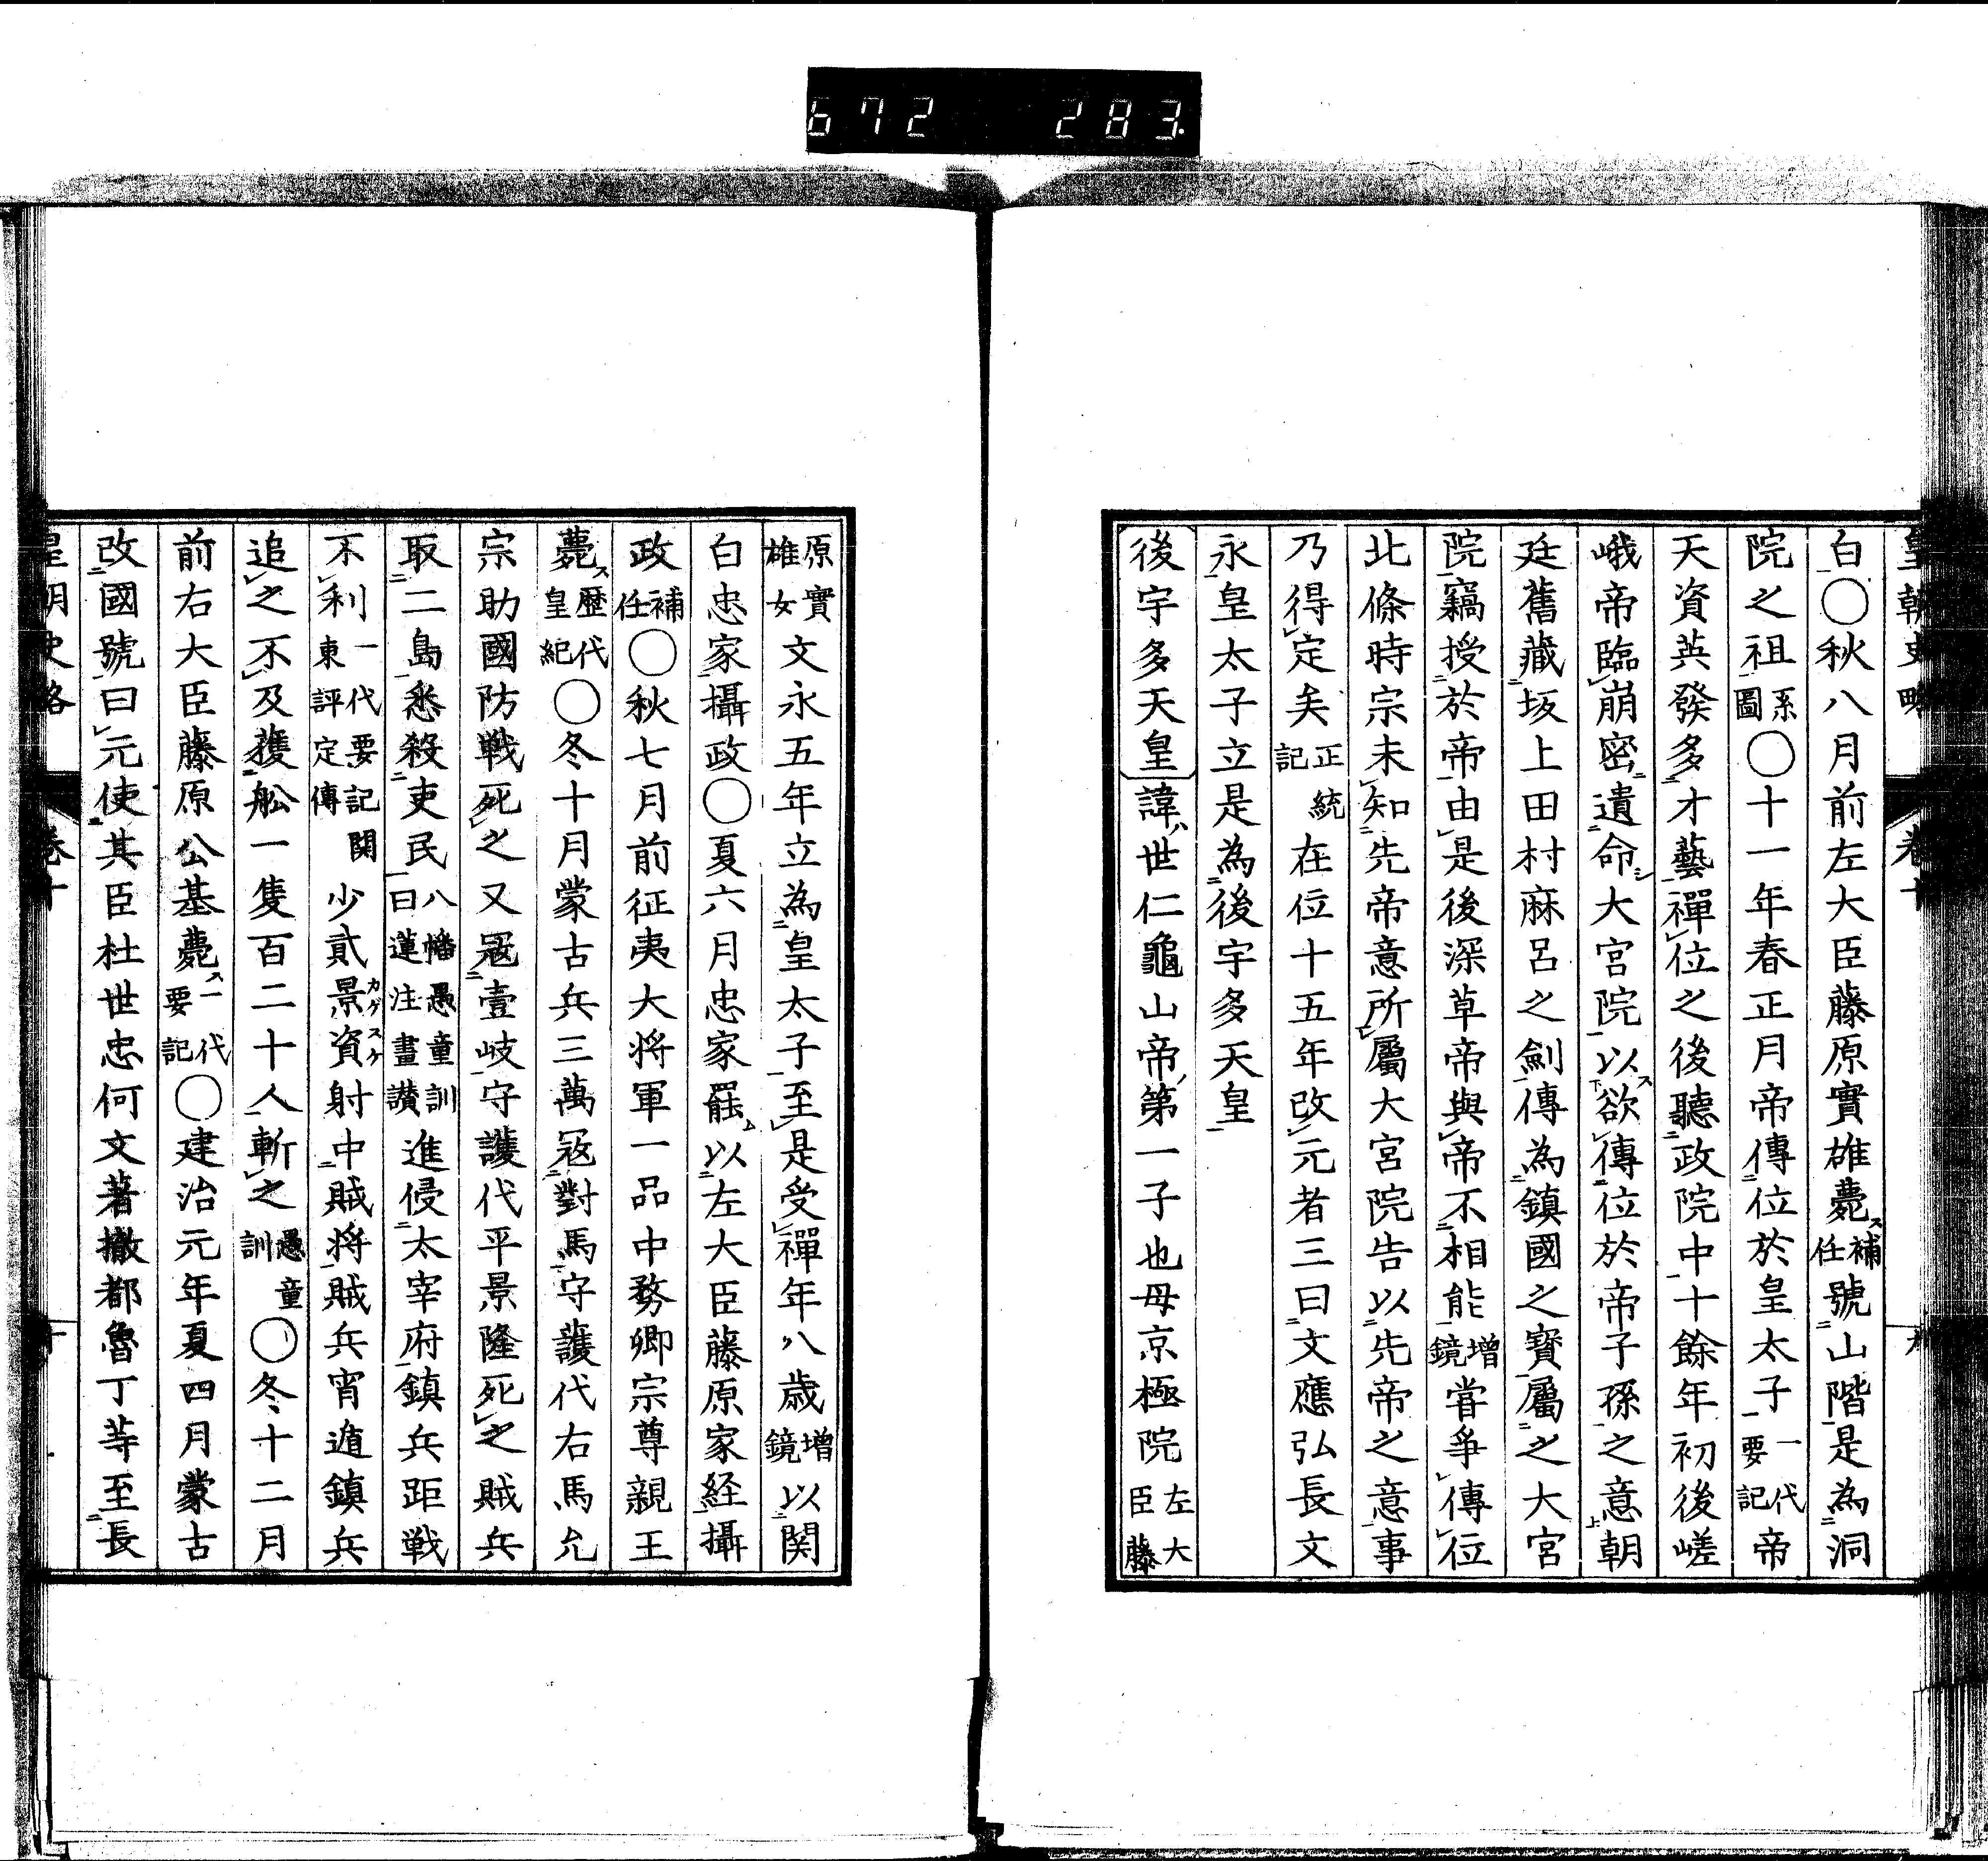 672 283
皇朝史略 卷十
白○秋八月前左大臣藤原實雄薨ス補任號山階是為洞
院之祖系圖○十一年春正月帝傳位於皇太子一代要記帝
天資英發多才藝禪位之後聽政院中十餘年初後嵯
峨帝臨崩密遺命シ大宮院以ス欲傳位於帝子孫之意朝
廷舊藏坂上田村麻呂之劍傳為鎮國之寶屬之大宮
院竊授於帝由是後深草帝與帝不相能增鏡嘗爭傳位
北條時宗未知先帝意所屬大宮院告以先帝之意事
乃得定矣正統記在位十五年改元者三曰文應弘長文
永皇太子立是為後宇多天皇
後宇多天皇諱ハ世仁龜山帝ノ第一子也母京極院左大臣藤
原實雄女文永五年立為皇太子至是受禪年八歳增鏡以関
白忠家攝政○夏六月忠家罷ム以左大臣藤原家経攝
政補任○秋七月前征夷大将軍一品中務卿宗尊親王
薨ス歴代皇紀○冬十月蒙古兵三萬冦對馬守護代右馬允
宗助國防戦死之又冦壹岐守護代平景隆死之賊兵
取二島悉殺吏民八幡愚童訓日蓮注畫讃進侵太宰府鎮兵距戦
不利一代要記関東評定傳少貳景資カゲスケ射中賊将賊兵宵遁鎮兵
追之不及獲舩一隻百二十人斬之愚童訓○冬十二月
前右大臣藤原公基薨ス一代要記○建治元年夏四月蒙古
改國號曰元使其臣杜世忠何文著撒都魯丁等至長
皇朝史略 卷十